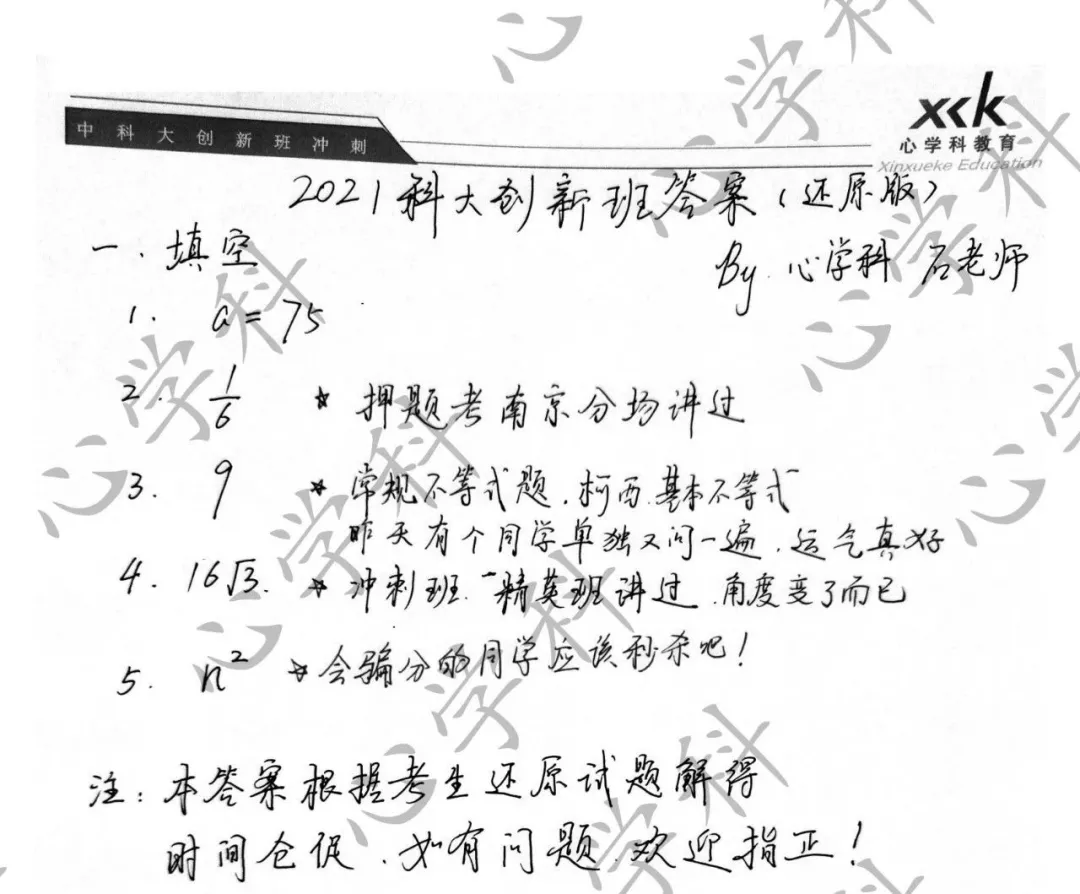 中科大创新班冲刺
xxk
心学科教育
Xinxueke Education
2021科大创新班答案（还原版）
By 心学科 石老师
一、填空
1. a = 75
2. 1/6 ☆ 押题考南京分场讲过
3. 9 ☆ 常规不等式题，柯西、基本不等式
昨天有个同学单独又问一遍，运气真好
4. 16√3. ☆ 冲刺班、精英班讲过，角度变了而已
5. n² ☆ 会骗分的同学应该秒杀吧！
注：本答案根据考生还原试题解得
时间仓促，如有问题，欢迎指正！
心学科